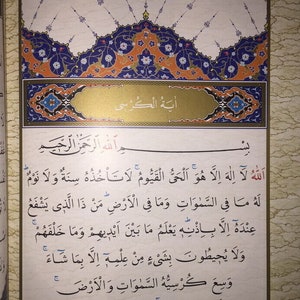 آيَةُ الْكُرْسِي
بِسْمِ اللّٰهِ الرَّحْمٰنِ الرَّحِيمِ
اَللّٰهُ لَٓا اِلٰهَ اِلَّا هُوَۚ اَلْحَيُّ الْقَيُّومُۚ لَا تَأْخُذُهُ سِنَةٌ وَلَا نَوْمٌۜ
لَهُ مَا فِي السَّمٰوَاتِ وَمَا فِي الْاَرْضِۜ مَنْ ذَا الَّذِي يَشْفَعُ
عِنْدَهُٓ اِلَّا بِاِذْنِهۜ يَعْلَمُ مَا بَيْنَ اَيْدِيهِمْ وَمَا خَلْفَهُمْۚ
وَلَا يُحِيطُونَ بِشَيْءٍ مِنْ عِلْمِهٓ اِلَّا بِمَا شَٓاءَۚ
وَسِعَ كُرْسِيُّهُ السَّمٰوَاتِ وَالْاَرْضَۚ